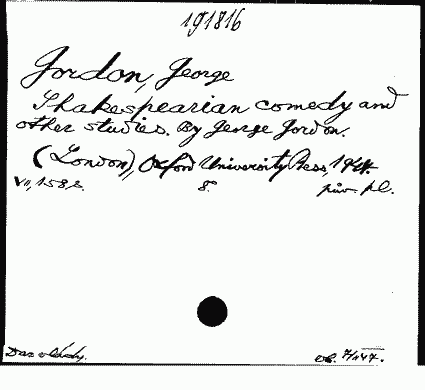 191816
Gordon, George
Shakespearian comedy and
other studies. By George Gordon.
(London), Oxford University Press, 1944.
VII, 158 s. 8° pův. pl.
Dar vlády. 7/147.